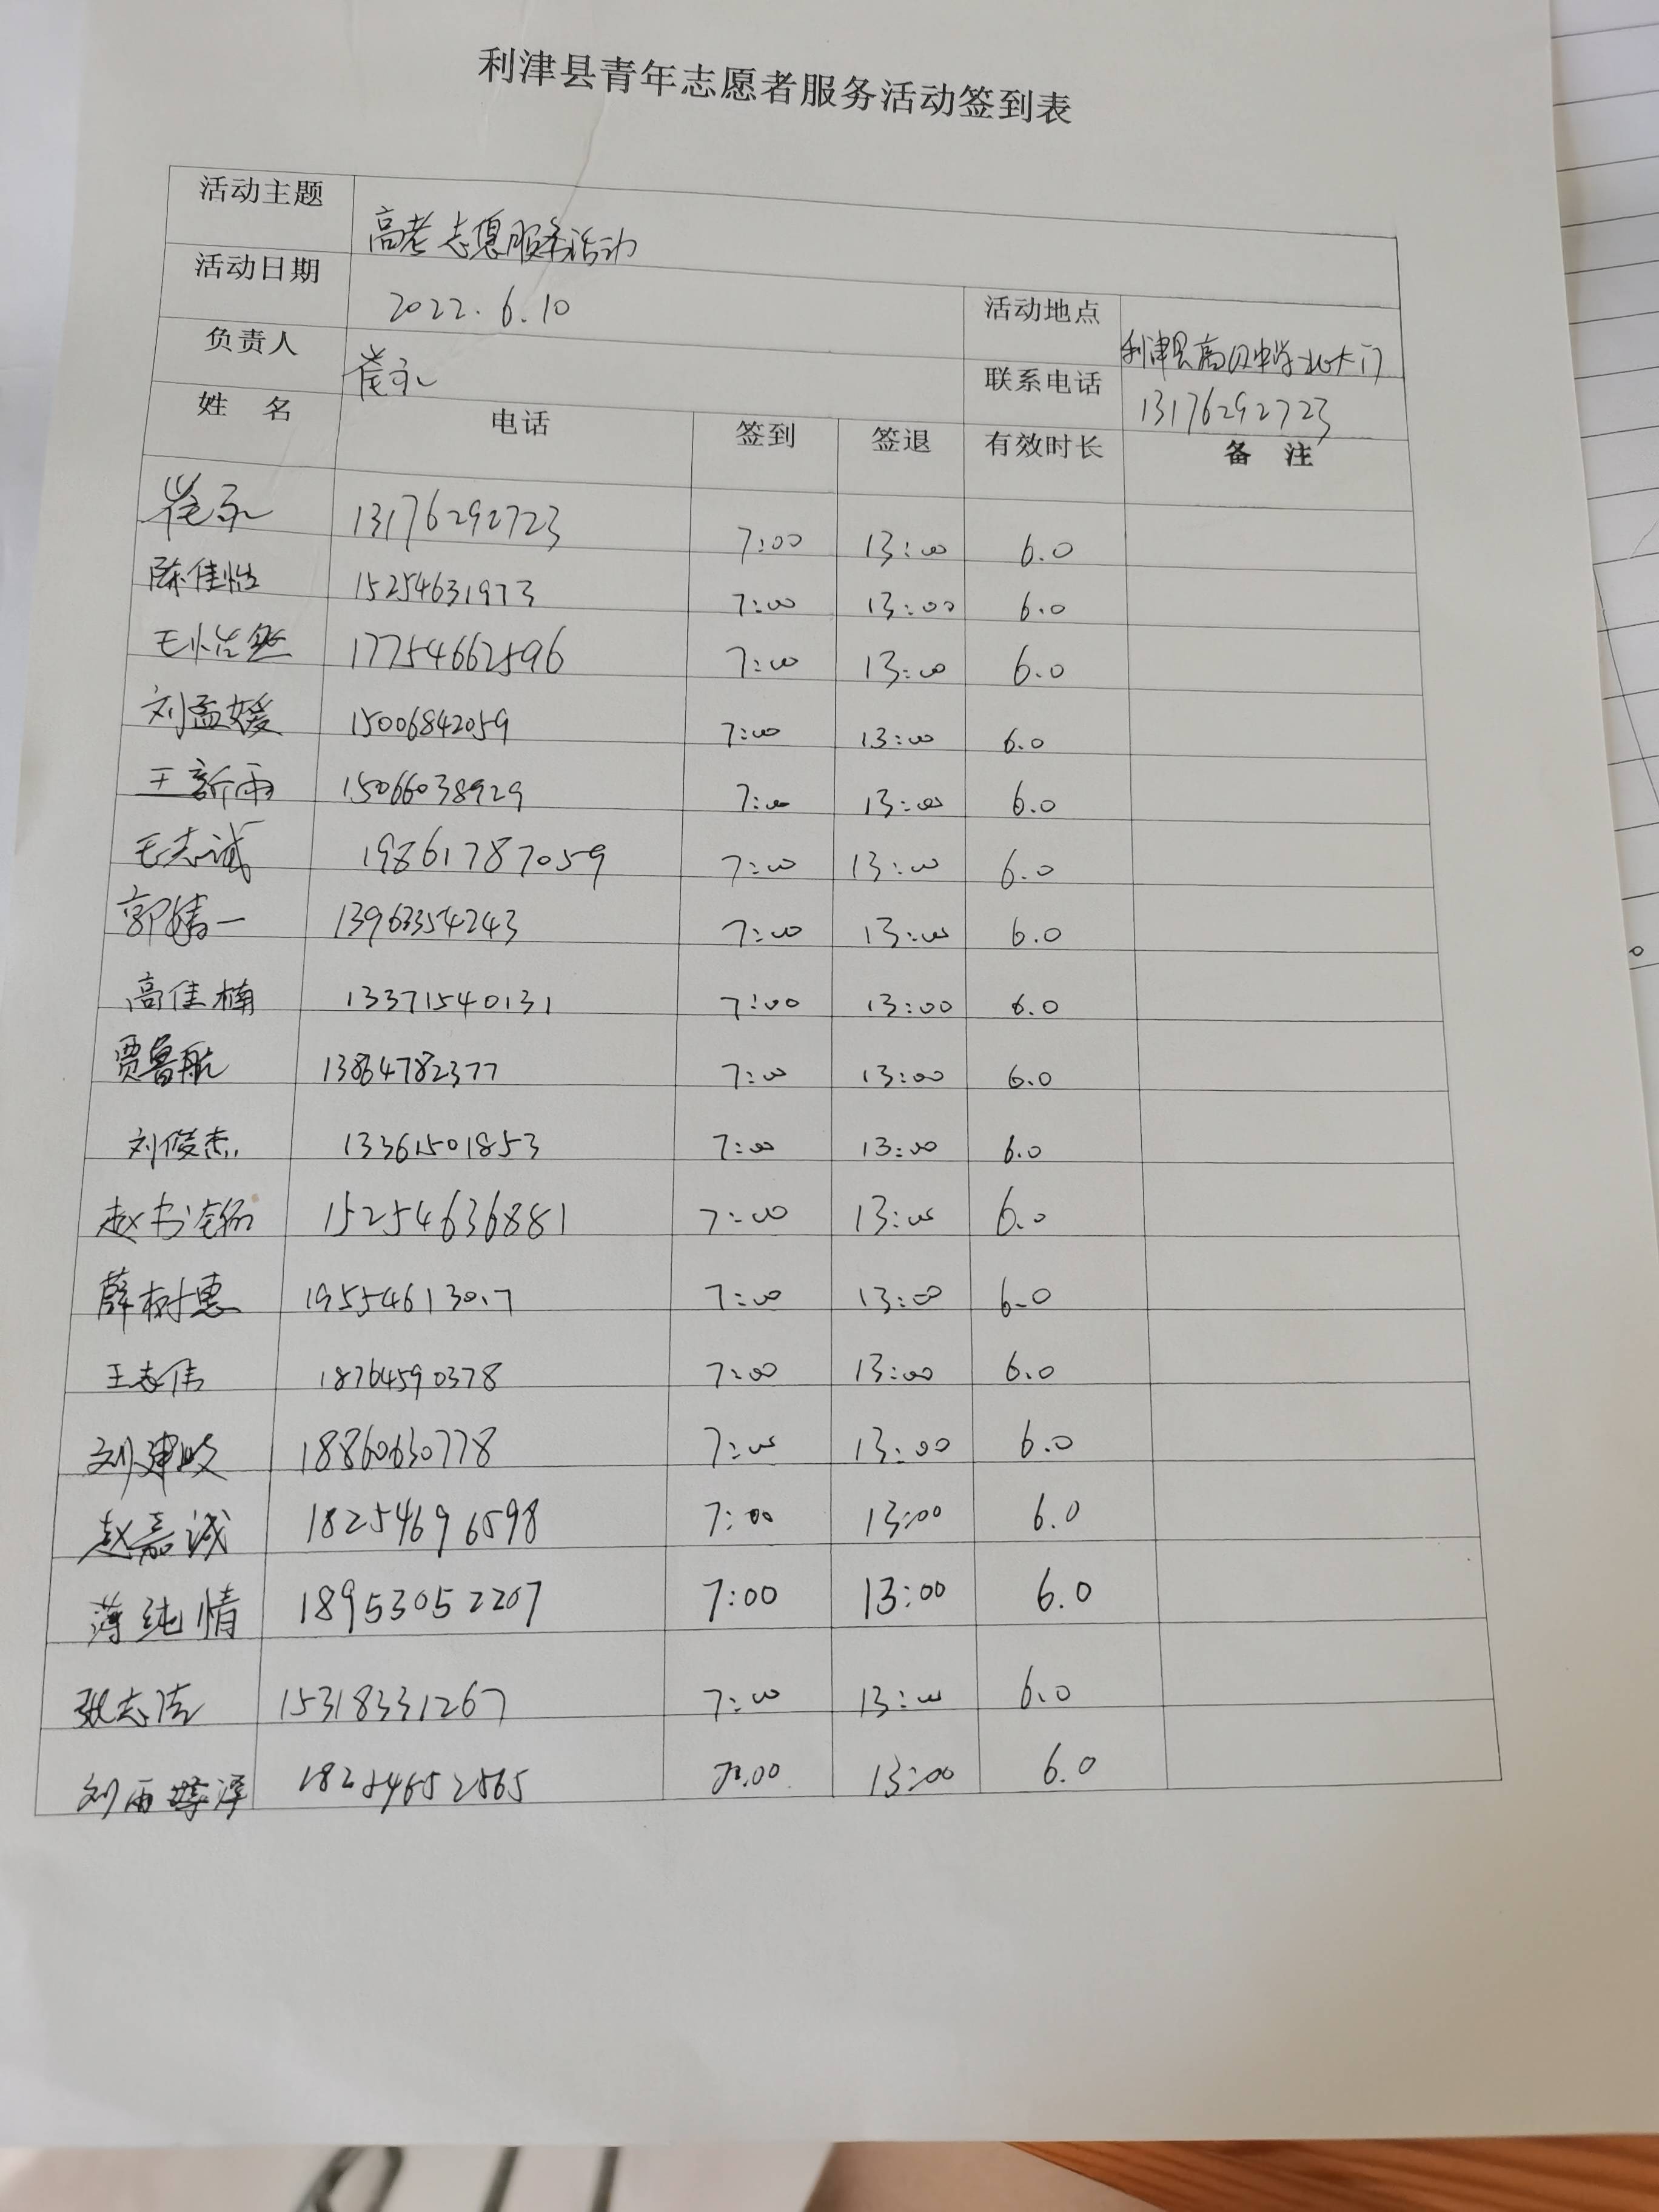 利津县青年志愿者服务活动签到表
活动主题 高考志愿服务活动
活动日期 2022.6.10 活动地点 利津县高级中学北大门
负责人 崔永 联系电话 13176292723
姓 名 电话 签到 签退 有效时长 备 注
崔永 13176292723 7:00 13:00 6.0
陈佳怡 15254631973 7:00 13:00 6.0
17754662596 7:00 13:00 6.0
刘孟媛 15006842059 7:00 13:00 6.0
王新雨 15066038929 7:00 13:00 6.0
毛志诚 19861787059 7:00 13:00 6.0
郭婧一 13963354243 7:00 13:00 6.0
高佳楠 13371540131 7:00 13:00 6.0
贾鲁航 13864782377 7:00 13:00 6.0
刘俊杰 13361501853 7:00 13:00 6.0
赵书 15254636881 7:00 13:00 6.0
薛树惠 7:00 13:00 6.0
王志伟 18764590378 7:00 13:00 6.0
刘建 18860630778 7:00 13:00 6.0
赵嘉诚 18254696598 7:00 13:00 6.0
薄纯情 18953052207 7:00 13:00 6.0
张志 15318331267 7:00 13:00 6.0
刘雨泽 18254652565 7:00 13:00 6.0